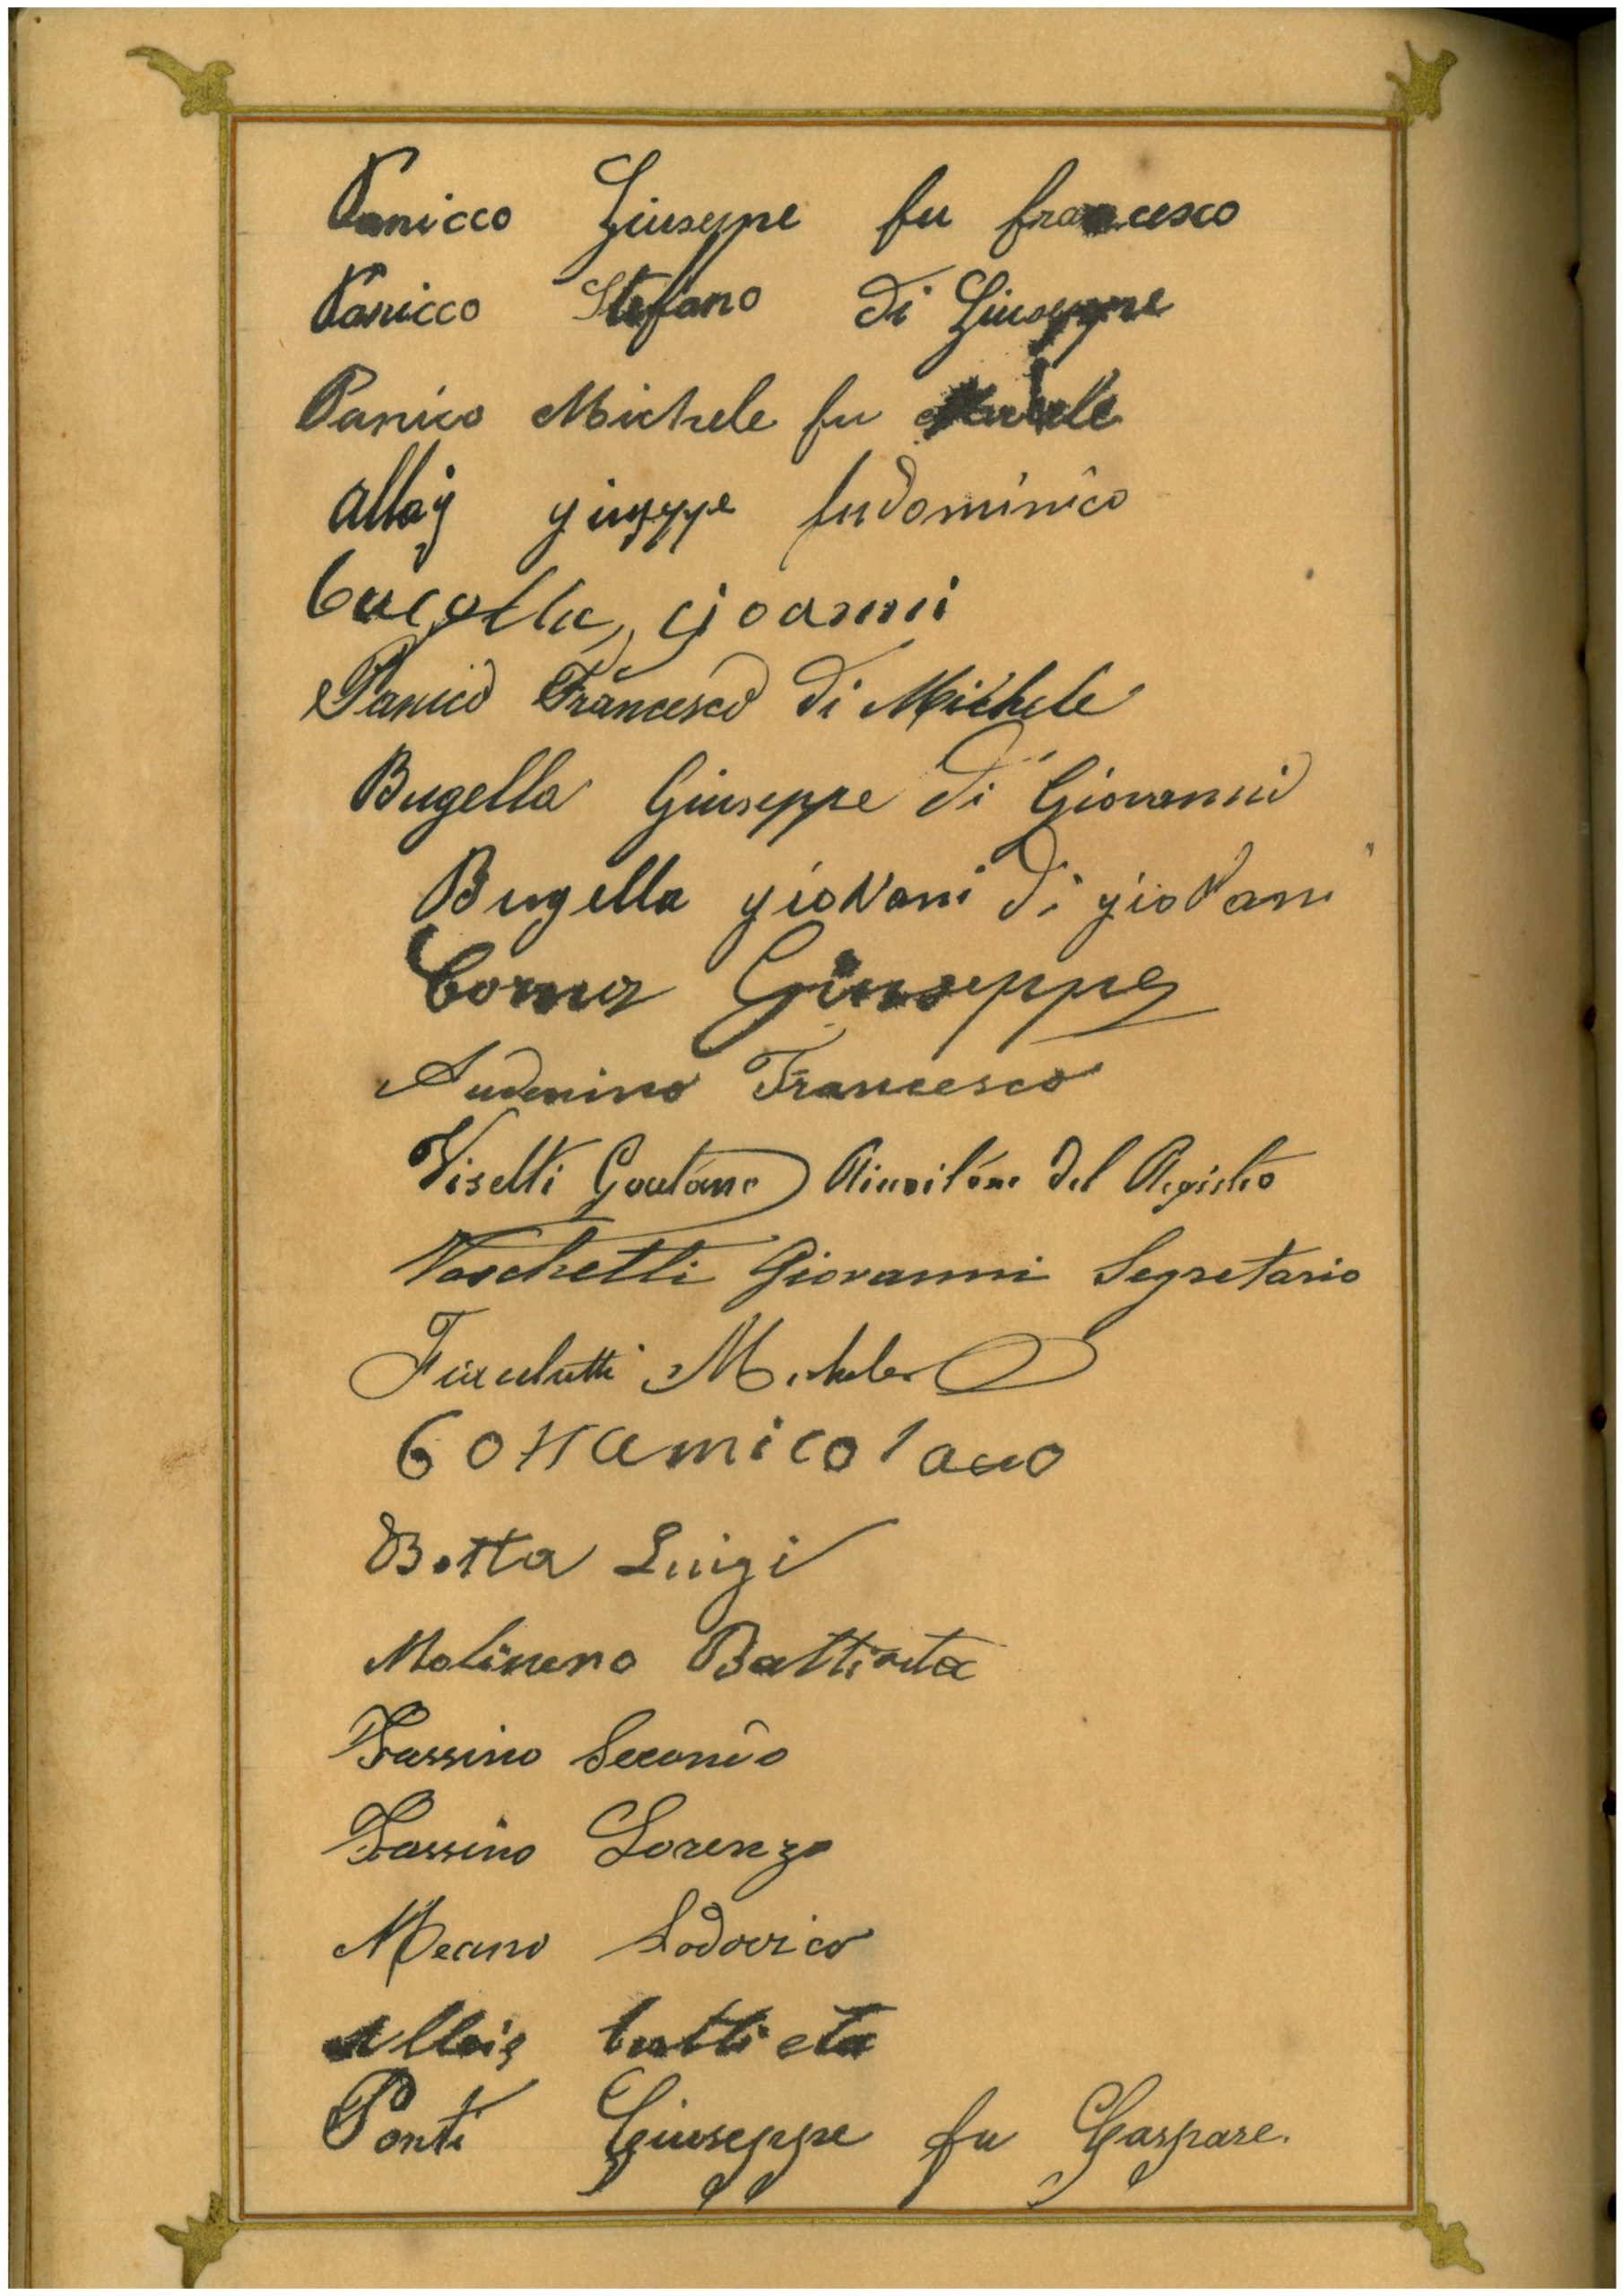 Panicco Giuseppe fu francesco
Panicco Stefano di Giuseppe
Panico Michele fu
Alloj giuseppe fu dominico
gioanni
Panico Francesco di Michele
Bugella Giuseppe di Giovanni
Bugella gioVani di gioVani
Giuseppe
Audenino Francesco
Viselti Gaetano Ricevitore del Registro
Vaschetti Giovanni Segretario
Michele
Botta Luigi
Molinero Battista
Fassino Secondo
Fassino Lorenzo
Meano Lodovico
battista
Ponti Giuseppe fu Gaspare.